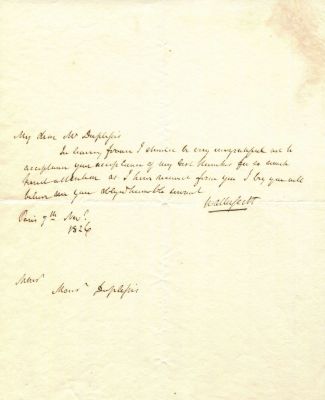 My dear Mr Duplessis
In leaving France I should be very ungrateful not to
acceptance your acceptance of my best thanks for so much
kind attention as I have received from you I beg you will
believe me your obliged humble servant
Walter Scott
Paris 7th Novr.
1826
Monsr Duplessis